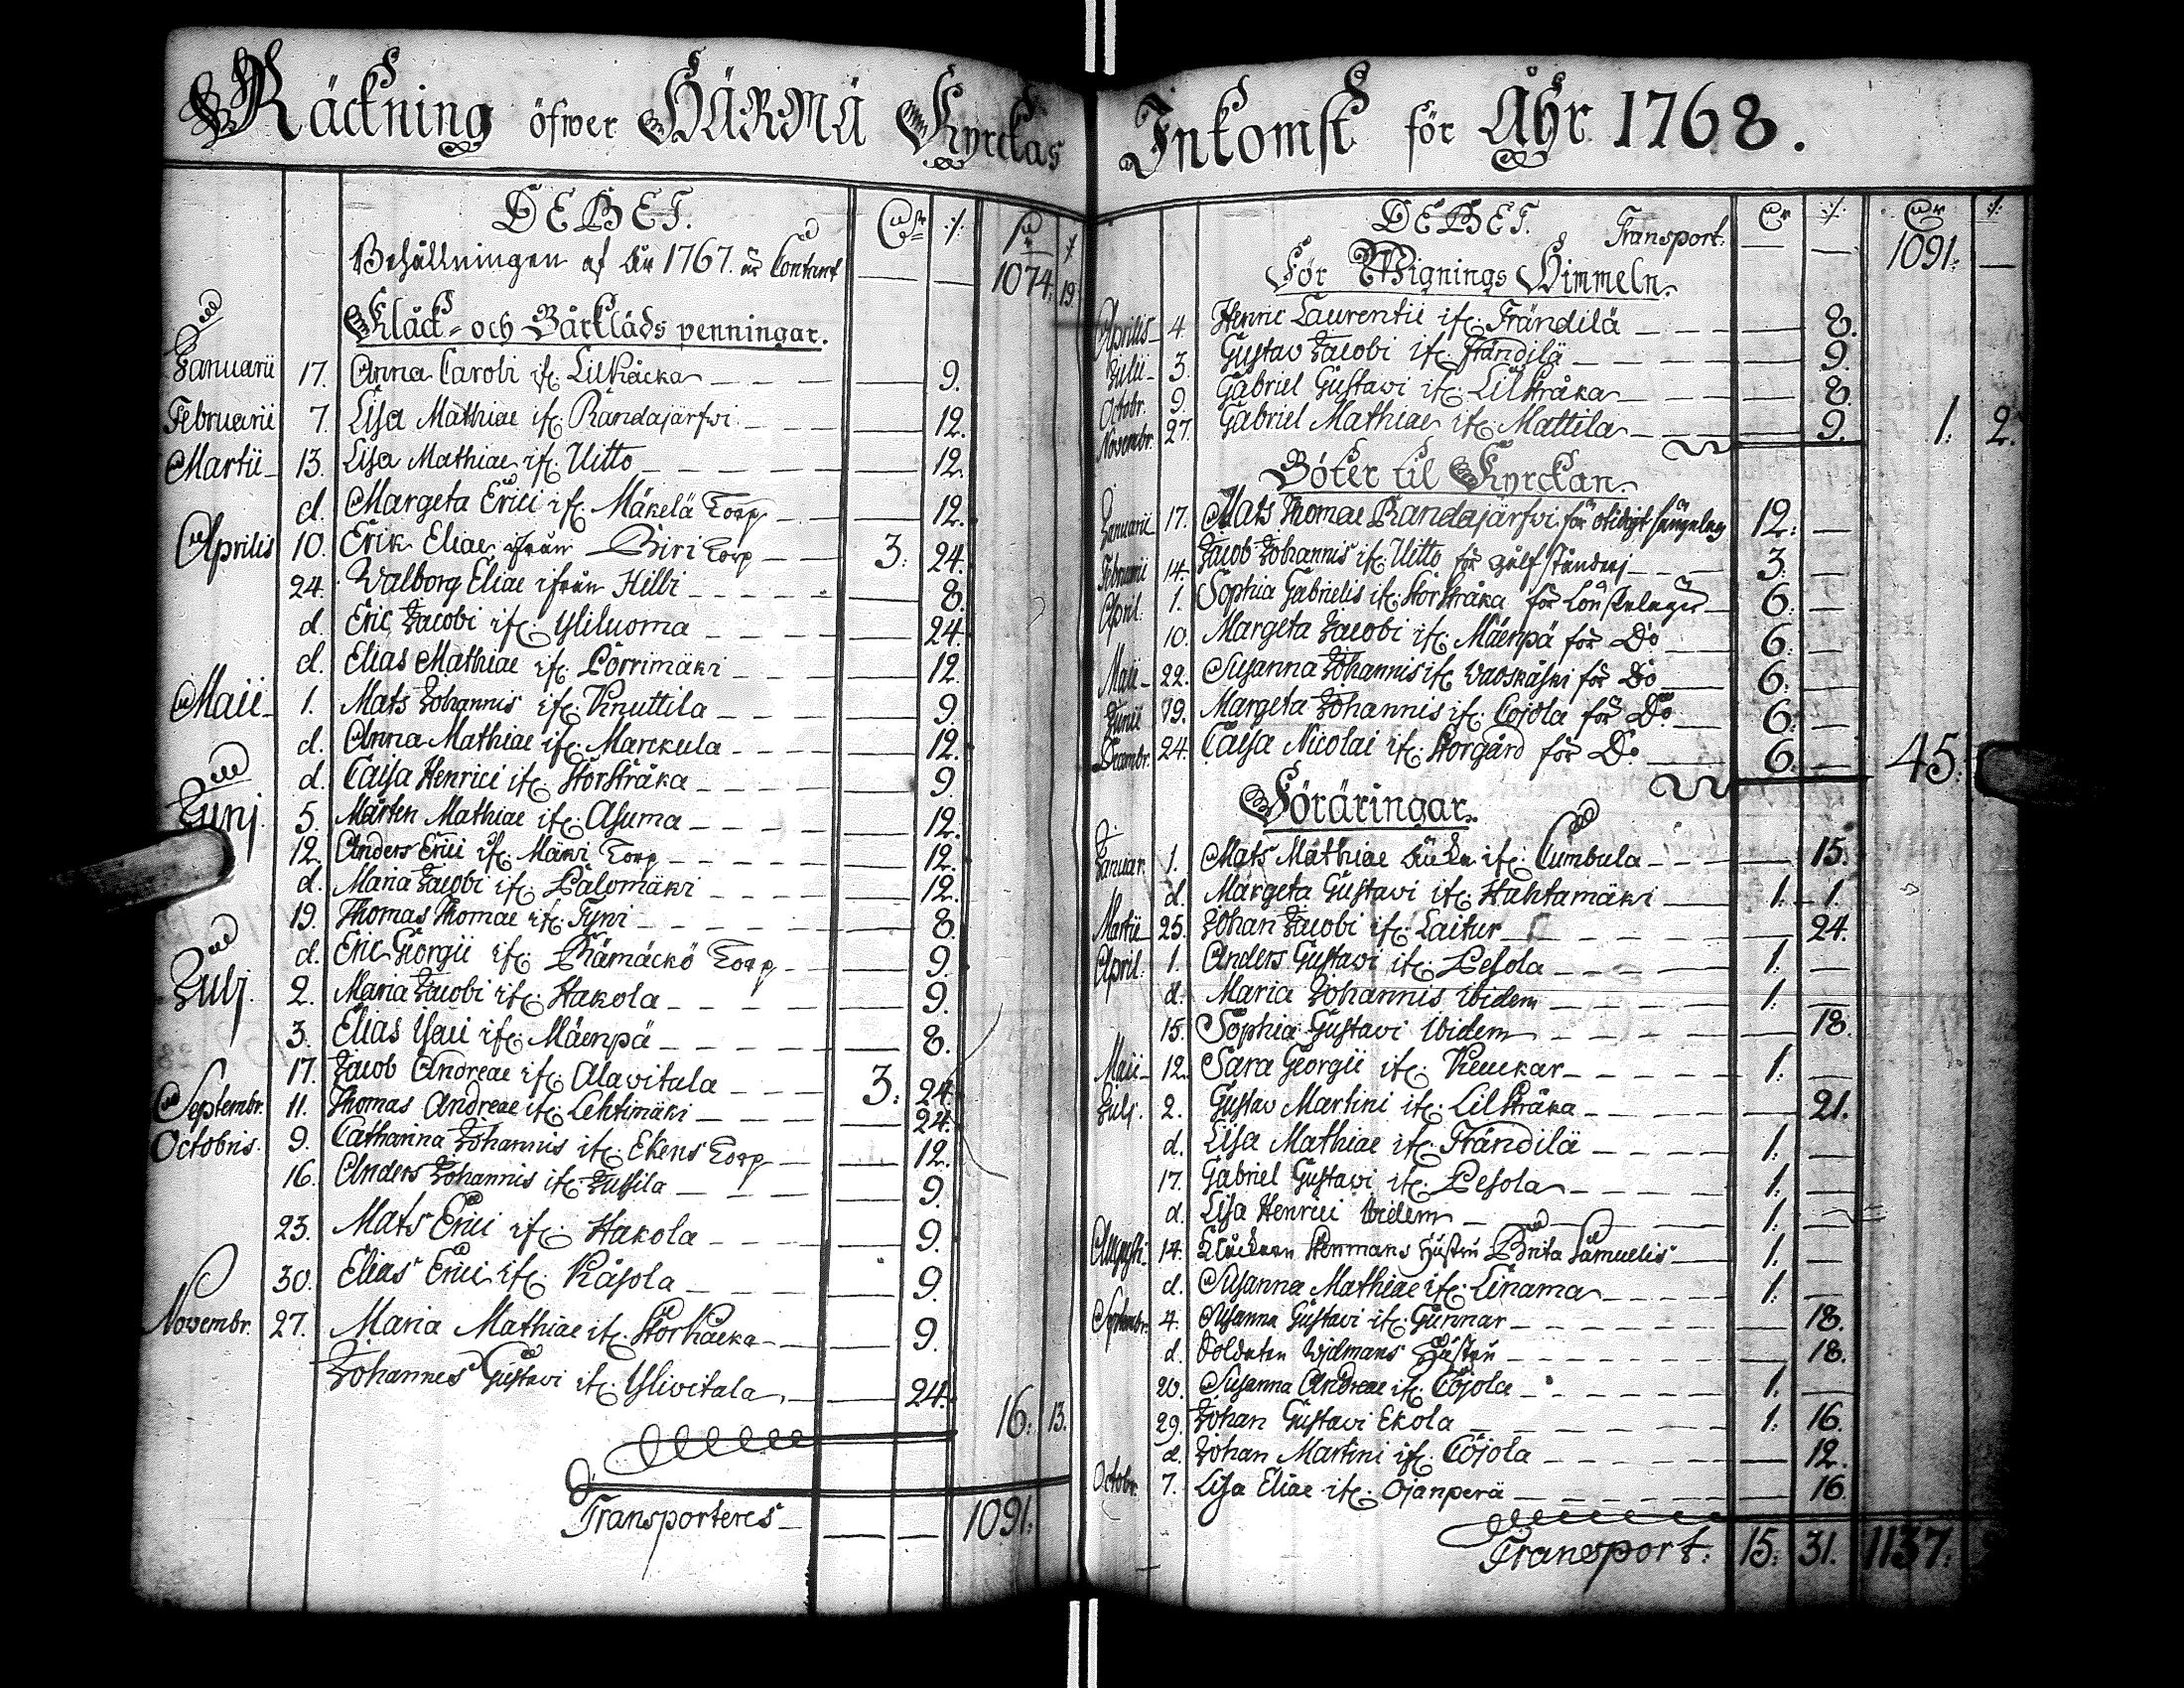 Räckning öfwer HÄRMÄ Kyrckas Inkomst för Åhr 1768.
DEBET.
Behållningen af År 1767. är Contant — — 1074. 19.
Kläck- och Bårkläds penningar.
Januarii 17. Anna Caroli if. Lilkacka — 9.
Februarii 7. Lisa Mathiae if. Randajärfwi — 12.
Martii 13. Lisa Mathiae if. Uitto — 12.
d. Margeta Erici if. Mäkelä Torp — 12.
Aprilis 10. Erik Eliae ifrån Biri Torp — 3: 24.
24. Walborg Eliae ifrån Hilli — 8.
d. Eric Jacobi if. Yliluoma — 24.
d. Elias Mathiae if. Pörrimäki — 12.
Maii 1. Mats Johannis if. Knuttila — 9.
d. Anna Mathiae if. Marckula — 12.
d. Caisa Henrici if. Storstråka — 9.
Junj. 5. Mårten Mathiae if. Asuma — 12.
12. Anders Erici if. Mäki Torp — 12.
d. Maria Jacobi if. Palomäki — 12.
19. Thomas Thomae if. Tyni — 8.
d. Eric Georgii if. Rämäckö Torp — 9.
Julj. 2. Maria Jacobi if. Hakola — 9.
3. Elias Esaei if. Mäenpä — 8.
17. Jacob Andreae if. Alawitala — 3: 24.
Septembr. 11. Thomas Andreae if. Lehtimäki — 24.
Octobris. 9. Catharina Johannis if. Ekens Torp — 12.
16. Anders Johannis if. Jussila — 9.
23. Mats Erici if. Hakola — 9.
30. Elias Erici if. Kåsola — 9.
Novembr. 27. Maria Mathiae if. Storkacka — 9.
Johannes Gustavi if. Yliwitala — 24.
16: 13.
Transporteres — — 1091:
DEBET. Transport: — — 1091: —
För Wignings Himmeln.
Aprilis 4. Henric Laurentii if. Frändilä — 8.
Julii 3. Gustav Jacobi if. Frändilä — 9.
Octobr. 9. Gabriel Gustavi if. Lilstråka — 8.
Novembr. 27. Gabriel Mathiae if. Mattila — 9. 1: 2.
Böter til Kyrckan.
Januarii 17. Mats Thomae Randajärfwi för otidigt sängelag 12: —
Februarii 14. Jacob Johannis if. Uitto för 3. —
April. 1. Sophia Gabrielis if. Storstråka för Lönskelager 6: —
10. Margeta Jacobi if. Mäenpä för Do 6: —
Maii 22. Susanna Johannis if. för Do 6: —
Junii 19. Margeta Johannis if. Cojola för Do 6: —
Decembr. 24. Caisa Nicolai if. Storgård för Do 6: — 45:
Föräringar.
Januar. 1. Mats Mathiae if. Cumbula — 15.
d. Margeta Gustavi if. Hahtamäki — 1: 1.
Martii 25. Johan Jacobi if. Laitur — 24.
April. 1. Anders Gustavi if. Pesola — 1: —
d. Maria Johannis ibidem — 1: —
15. Sophia Gustavi ibidem — 18.
Maii 12. Sara Georgii if. Keuckar — 1: —
Julj. 2. Gustav Martini if. Lilstråka — 21.
d. Lisa Mathiae if. Frändilä — 1: —
17. Gabriel Gustavi if. Pesola — 1: —
d. Lisa Henrici ibidem — 1: —
Augusti 14. Klåckaren Stenmans Hustru Brita Samuelis — 1: —
d. Susanna Mathiae if. Linama — 1: —
Septembr. 4. Susanna Gustavi if. Gunnar — 18.
d. Soldaten Widmans Hustru — 18.
20. Susanna Andreae if. Cojola — 1: —
29. Johan Gustavi Ekola — 1: 16.
d. Johan Martini if. Cojola — 12.
Octobr. 7. Lisa Eliae if. Ojanperä — 16.
Transport: 15: 31. 1137: